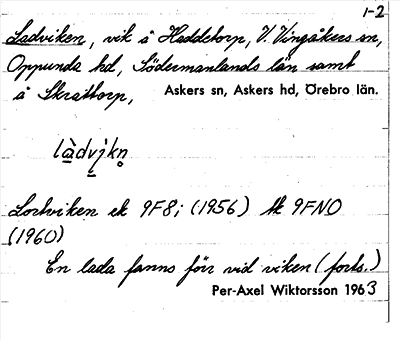 1-2
Ladviken, vik å Haddetorp, V. Vingåkers sn,
Oppunda hd, Södermanlands län samt
å Skrattorp, Askers sn, Askers hd, Örebro län.
làdvi̯kn̥
Lortviken ek 9F8i (1956) Ak 9FNO
(1960)
En lada fanns förr vid viken (forts.)
Per-Axel Wiktorsson 1963